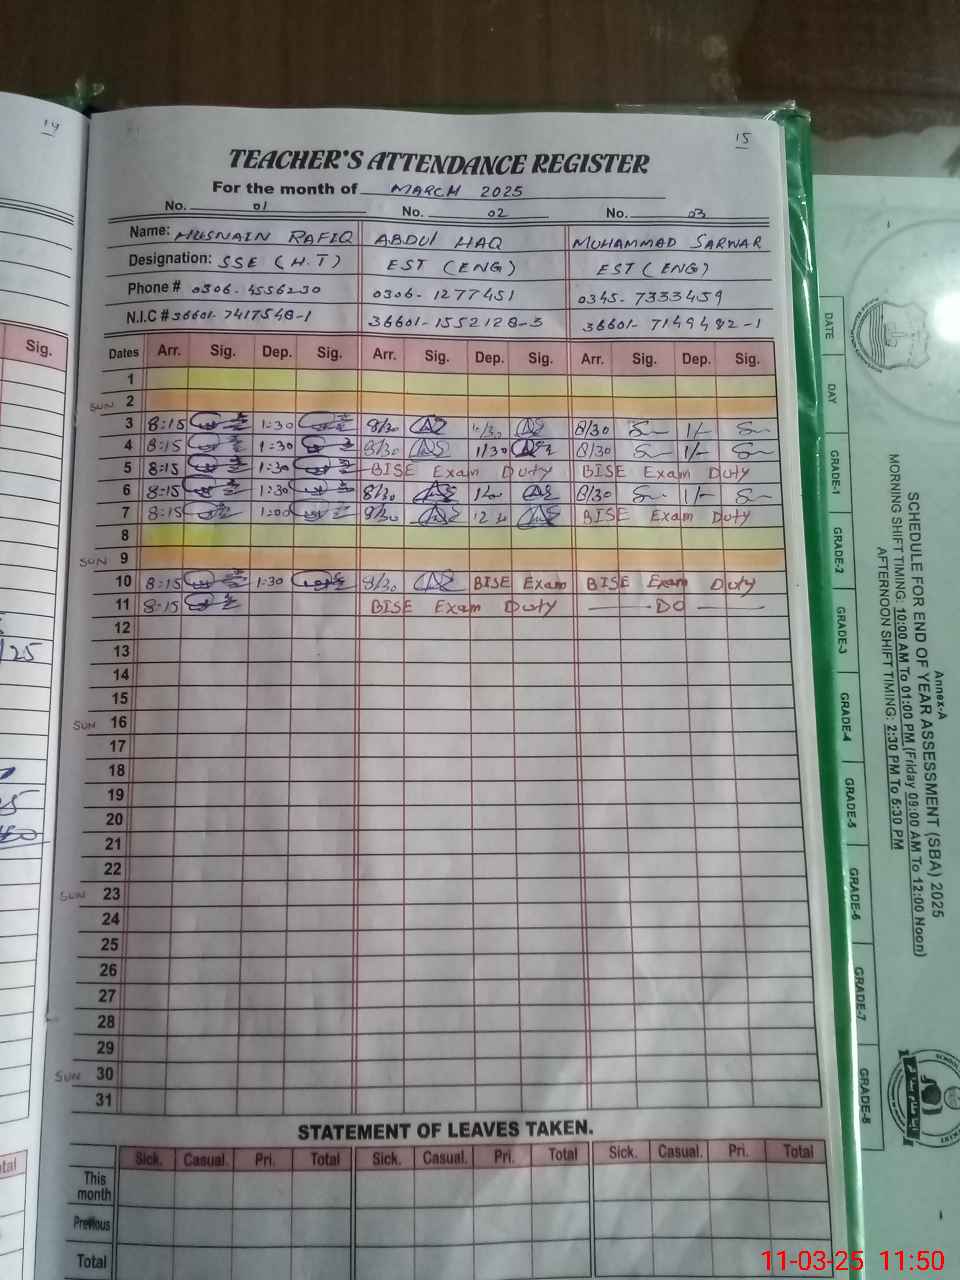 14
15
TEACHER'S ATTENDANCE REGISTER
For the month of MARCH 2025
No. 01 No. 02 No. 03
Name: HUSNAIN RAFIQ ABDUL HAQ MUHAMMAD SARWAR
Designation: SSE (H.T) EST (ENG) EST (ENG)
Phone # 0306-4556230 0306-1277451 0345-7333459
N.I.C # 36601-7417548-1 36601-1552128-3 36601-7149482-1
Sig.
Dates Arr. Sig. Dep. Sig. Arr. Sig. Dep. Sig. Arr. Sig. Dep. Sig.
1
SUN 2
3 8:15 1:30 8/30 8/30 1/-
4 8:15 1:30 8/30 1/30 8/30 1/-
5 8:15 1:30 BISE Exam Duty BISE Exam Duty
6 8:15 1:30 8/30 8/30 1/-
7 8:15 1:00 8/30 BISE Exam Duty
8
SUN 9
10 8:15 1:30 8/30 BISE Exam BISE Exam Duty
11 8:15 BISE Exam Duty DO
12
13
14
15
SUN 16
17
18
19
20
21
22
SUN 23
24
25
26
27
28
29
SUN 30
31
STATEMENT OF LEAVES TAKEN.
Sick. Casual. Pri. Total Sick. Casual. Pri. Total Sick. Casual. Pri. Total
This month
Previous
Total
Annex-A
SCHEDULE FOR END OF YEAR ASSESSMENT (SBA) 2025
MORNING SHIFT TIMING: 10:00 AM To 01:00 PM (Friday 09:00 AM To 12:00 Noon)
AFTERNOON SHIFT TIMING: 2:30 PM To 5:30 PM
DATE DAY GRADE-1 GRADE-2 GRADE-3 GRADE-4 GRADE-5 GRADE-6 GRADE-7 GRADE-8
11-03-25 11:50